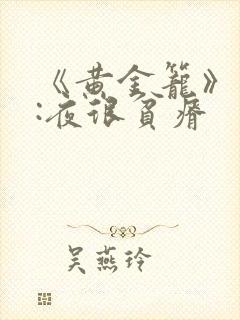 《黄金籠》
:夜很貧瘠
吴燕玲